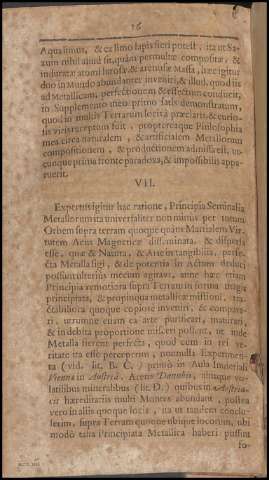 16
Aqua simus, & ex limo lapis fieri potest, ita ut Sa-
xum nihil aliud sit, quàm permultæ compositæ, &
induratæ atomi lutosæ & arenosæ Massa, hæc igitur
duo in Mundo abundanter inveniri, & illud, quod iis
ad Metallicam, perfectionem & effectum conducit,
in Supplemento meo primo satis demonstratum,
quod in multis Terrarum locis à præclaris, & curio-
sis viris receptum fuit, propterea que Philosophia
mea circa naturalem, & artificialem Metallorum
compositionem, & productionem admissa est, ut-
cunque prima fronte paradoxa, & impossibilis appa-
ruerit.
VII.
Expertus igitur hac ratione, Principia Seminalia
Metallorum ita universaliter non minus per totum
Orbem supra terram quoque quàm Martialem Vir-
tutem Aeris Magneticæ disseminata, & dispersa
esse, quæ & Natura, & Arte in tangibilia, perfe-
cta Metalla sigi, & de potentia in Actum deduci
possunt ulteriùs mecum agitavi, anne hæc etiam
Principia remotiora supra Terram in forma magis
principiata, & propinqua metallicæ mistioni, tra-
ctabiliora quoque copiose inveniri, & compara-
ri, utrumne etiam ex arte purificari, maturari,
& in debita proportione misceri possent, ut inde
Metalla fierent perfecta, quod cum in rei ve-
ritate ita esse perceperim, nonnulla Experimen-
ta (vid. lit. B. C.) primò in Aula Imperiali
Vienna in Austriâ, Arena Danubii, aliisque vo-
latilibus mineralibus (lit. D.) quibus in Austria-
cis hæreditariis multi Montes abundant, postea
verò in aliis quoque locis, ita ut tandem conclu-
serim, supra Terram quoque ubique locorum, ubi
modò talia Principiata Metallica haberi possint
so-